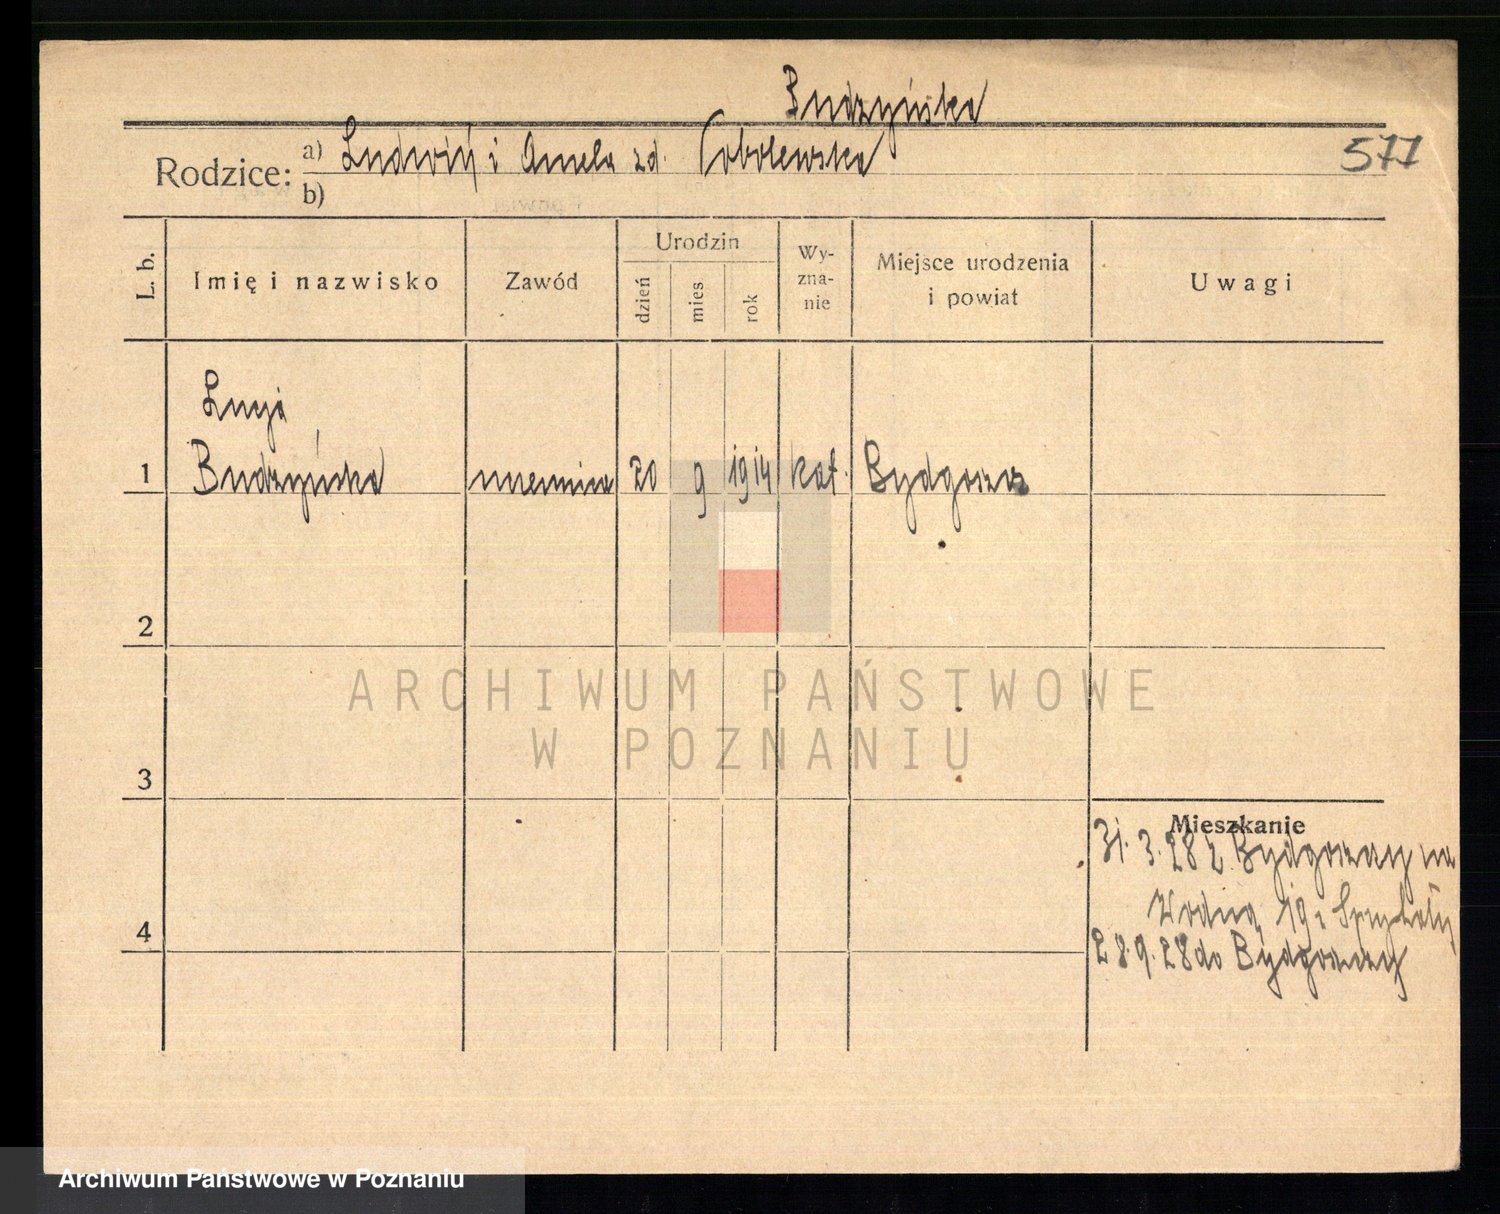 Budzyńska
577
Rodzice: a) Ludwik i Amela zd. Sobolewska
b)
L. b.
Imię i nazwisko
Zawód
Urodzin
dzień
mies
rok
Wy-
zna-
nie
Miejsce urodzenia
i powiat
Uwagi
Łucja
1 Budzyńska uczennica 20 9 1914 kat. Bydgoszcz
2
ARCHIWUM PAŃSTWOWE
W POZNANIU
3
Mieszkanie
31. 3. 28 z Bydgoszczy na
Wodną 19
4
28.9.28 do Bydgoszczy
Archiwum Państwowe w Poznaniu